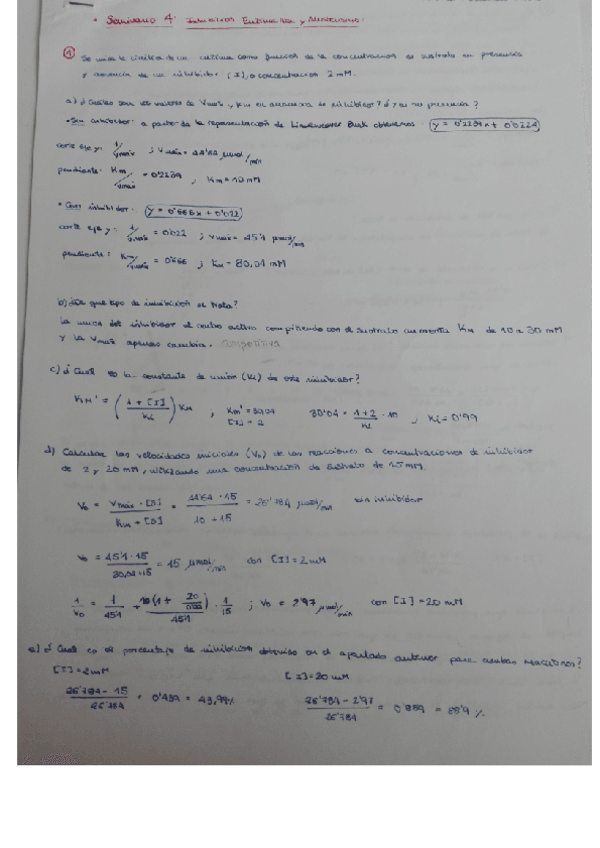 • Seminario 4: Inhibición Enzimática y
① Se mide la cinética de un enzima como función de la concentración de sustrato en presencia
y ausencia de un inhibidor (I), a concentración 2 mM.
a) ¿Cuáles son los valores de Vmáx y Km en ausencia de inhibidor? ¿y en su presencia?
• Sin inhibidor: a partir de la representación de Lineweaver Burk obtenemos: y = 0'2239x + 0'0224
corte eje y: 1/Vmáx ; Vmáx = 44'64 µmol/min
pendiente: Km/Vmáx = 0'2239 , Km = 10 mM
• Con inhibidor: y = 0'666x + 0'022
corte eje y: 1/Vmáx = 0'022 ; Vmáx = 45'4 µmol/min
pendiente: Km/Vmáx = 0'666 ; Km = 30,04 mM
b) ¿De qué tipo de inhibición se trata?
La unión del inhibidor al centro activo compitiendo con el sustrato aumenta KM de 10 a 30 mM
y la Vmáx apenas cambia. Competitiva
c) ¿Cuál es la constante de unión (Ki) de este inhibidor?
KM' = (1 + [I] / Ki) KM , Km' = 30,04 [I] = 2 30'04 = 1+2/Ki · 10 , Ki = 0'99
d) Calcular las velocidades iniciales (V₀) de las reacciones a concentraciones de inhibidor
de 2 y 20 mM, utilizando una concentración de sustrato de 15 mM.
V₀ = Vmáx · [S] / Km + [S] = 44'64 · 15 / 10 + 15 = 26'784 µmol/min sin inhibidor
V₀ = 45'4 · 15 / 30,04 + 15 = 15 µmol/min con [I] = 2 mM
1/V₀ = 1/45'4 + 10(1 + 20/0'99)/45'4 · 1/15 ; V₀ = 2'97 µmol/min con [I] = 20 mM
e) ¿Cuál es el porcentaje de inhibición obtenido en el apartado anterior para ambas reacciones?
[I] = 2 mM [I] = 20 mM
26'784 - 15 / 26'784 = 0'439 = 43,99% 26'784 - 2'97 / 26'784 = 0'889 = 88'9 %